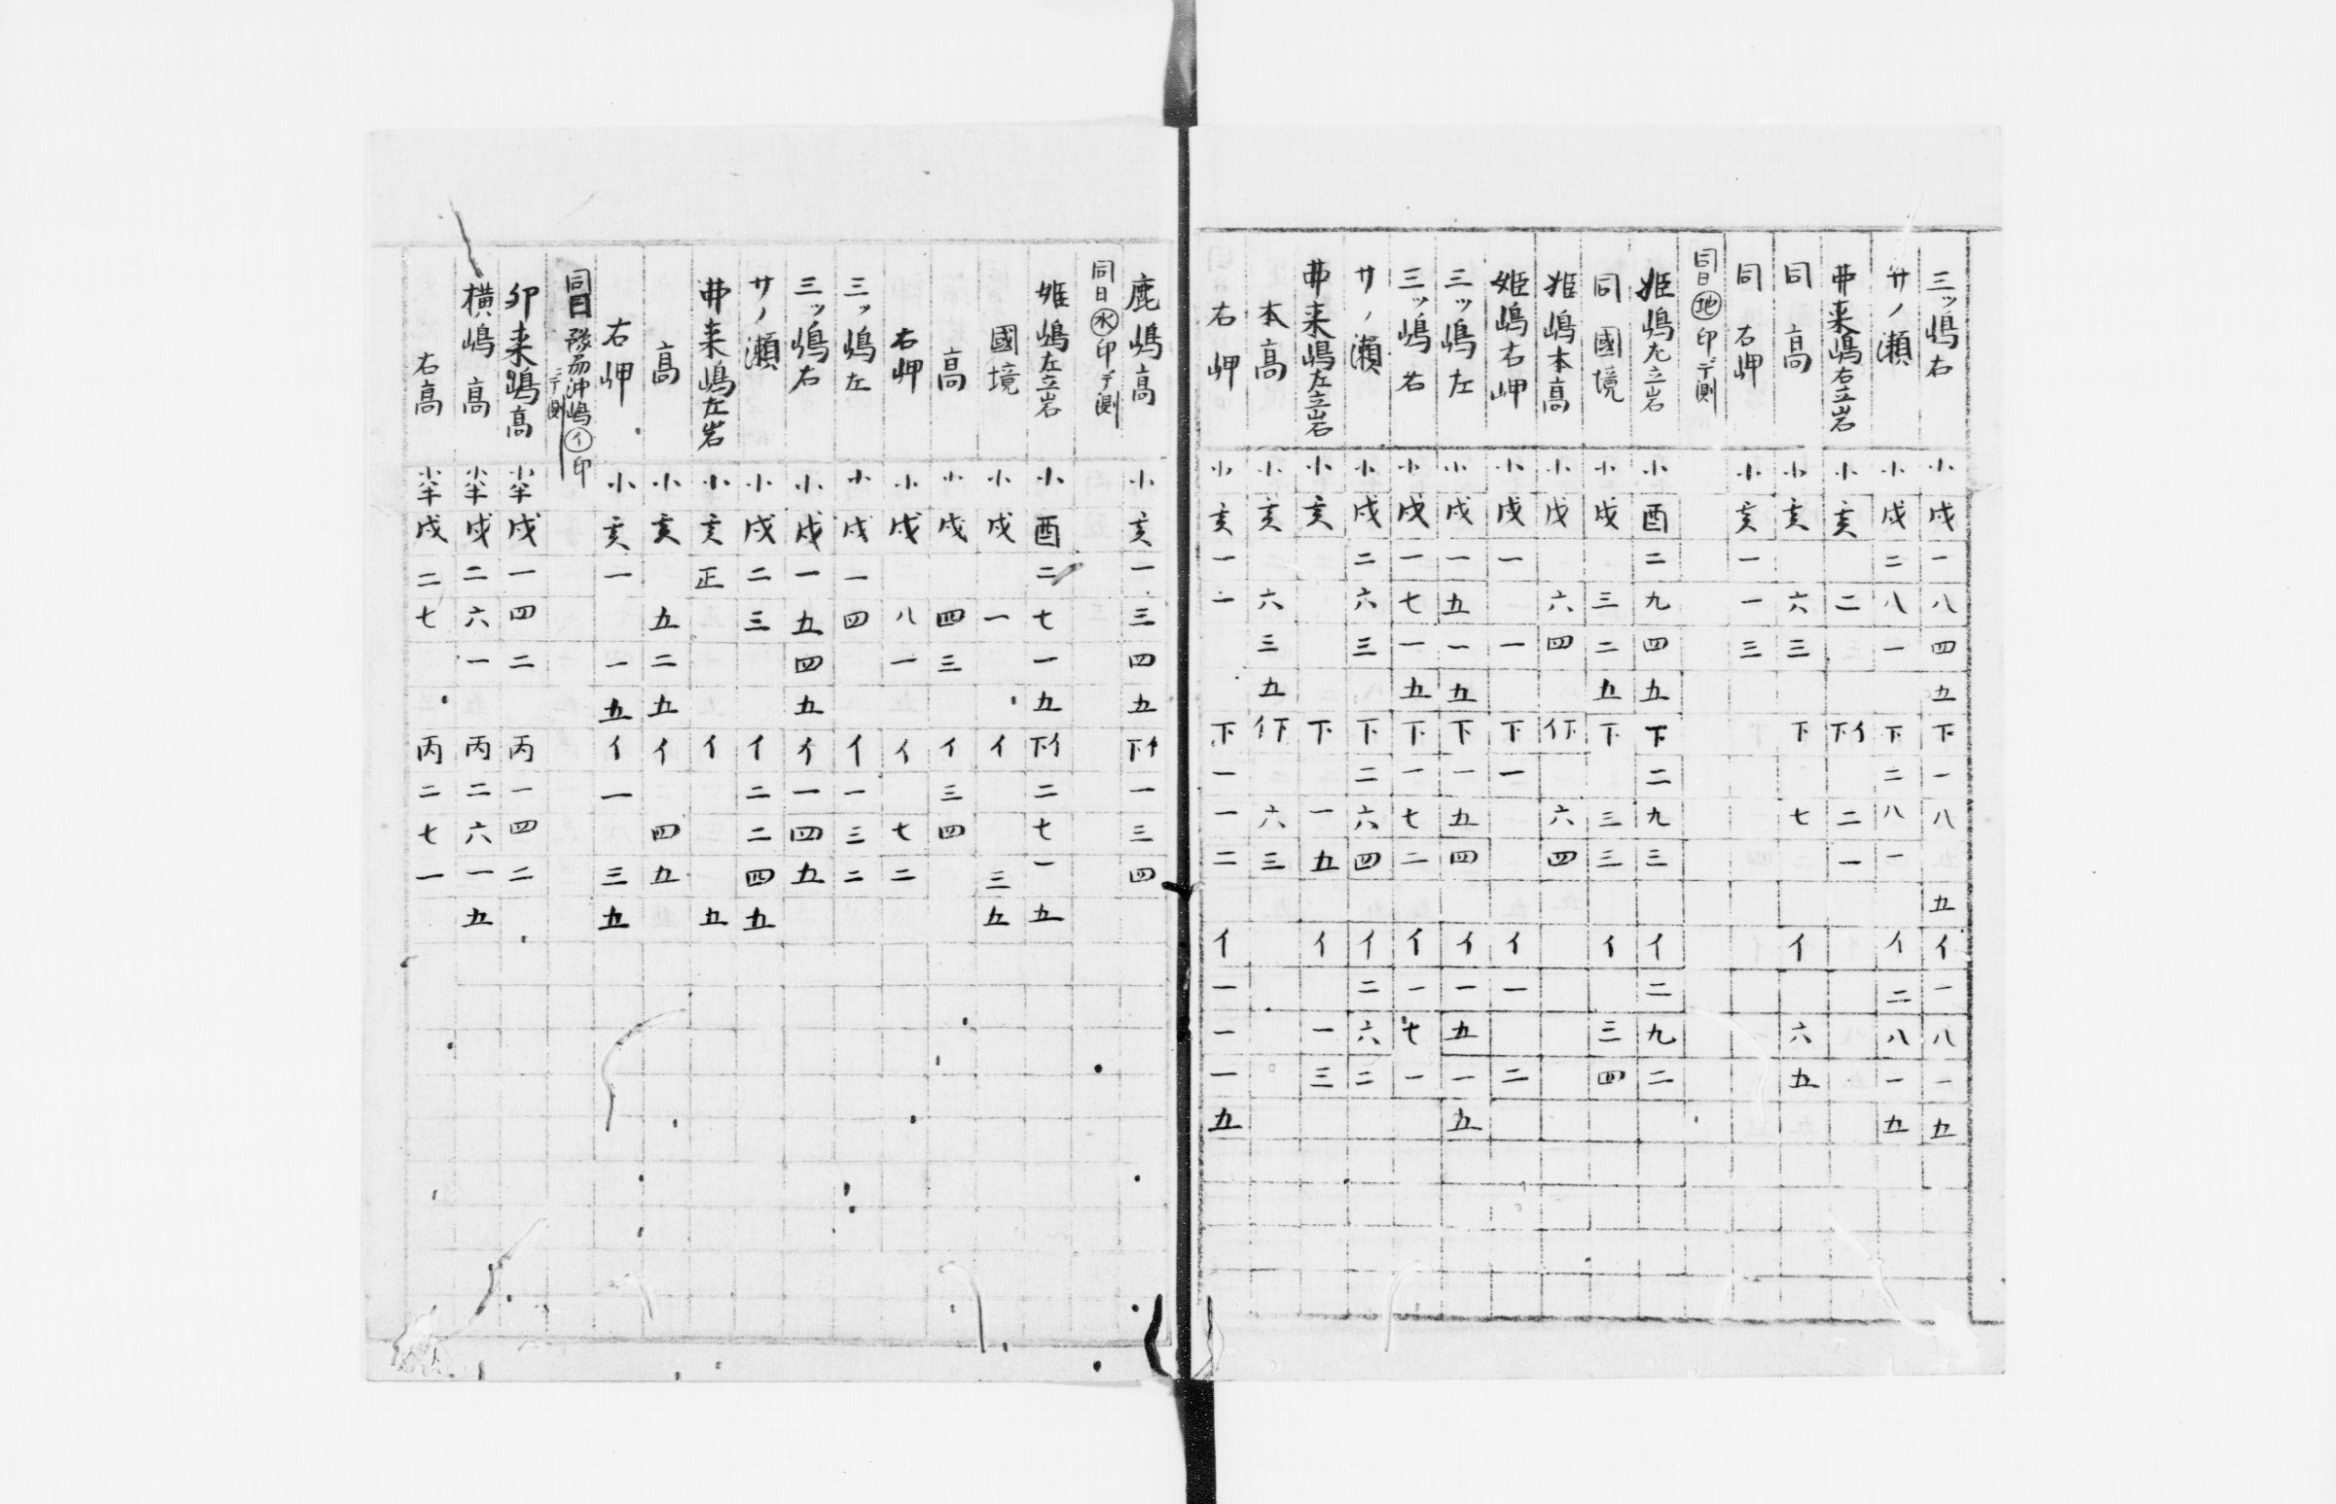 三ッ嶋右 小戌一八四五 下一八 五 イ一八一五
サノ瀬 小戌二八一 下二八一 イ二八一五
弗来嶋右立岩 小亥 二 下イ 二一
同 高 小亥 六三 下 七 イ 六五
同 右岬 小亥一一三
同日㊍印デ測
姫嶋左立岩 小酉二九四五 下二九三 イ二九二
同 國境 小戌 三二五 下 三三 イ 三四
姫嶋本高 小戌 六四 イ下 六四
姫嶋右岬 小戌一 一 下一 イ一 二
三ッ嶋左 小戌一五一五 下一五四 イ一五一五
三ッ嶋右 小戌一七一五 下一七二 イ一七一
サノ瀬 小戌二六三 下二六四 イ二六二
弗来嶋左立岩 小亥 下 一五 イ 一三
本高 小亥 六三五 イ下 六三
右岬 小亥一一 下一一二 イ一一一五
鹿嶋高 小亥一三四五 下イ一三四
同日㊌印デ測
姫嶋左立岩 小酉二七一五 下イ二七一五
國境 小戌 一 イ 三五
高 小戌 四三 イ三四
右岬 小戌 八一 イ 七二
三ッ嶋左 小戌一四 イ一三二
三ッ嶋右 小戌一五四五 イ一四五
サノ瀬 小戌二三 イ二二四五
弗来嶋左岩 小亥正 イ 五
高 小亥 五二五 イ 四五
右岬 小亥一 一五 イ一 三五
同日 豫州沖嶋㋑印
デ測
卯来嶋高 小半戌一四二 丙一四二
横嶋高 小半戌二六一 丙二六一五
右高 小半戌二七 丙二七一